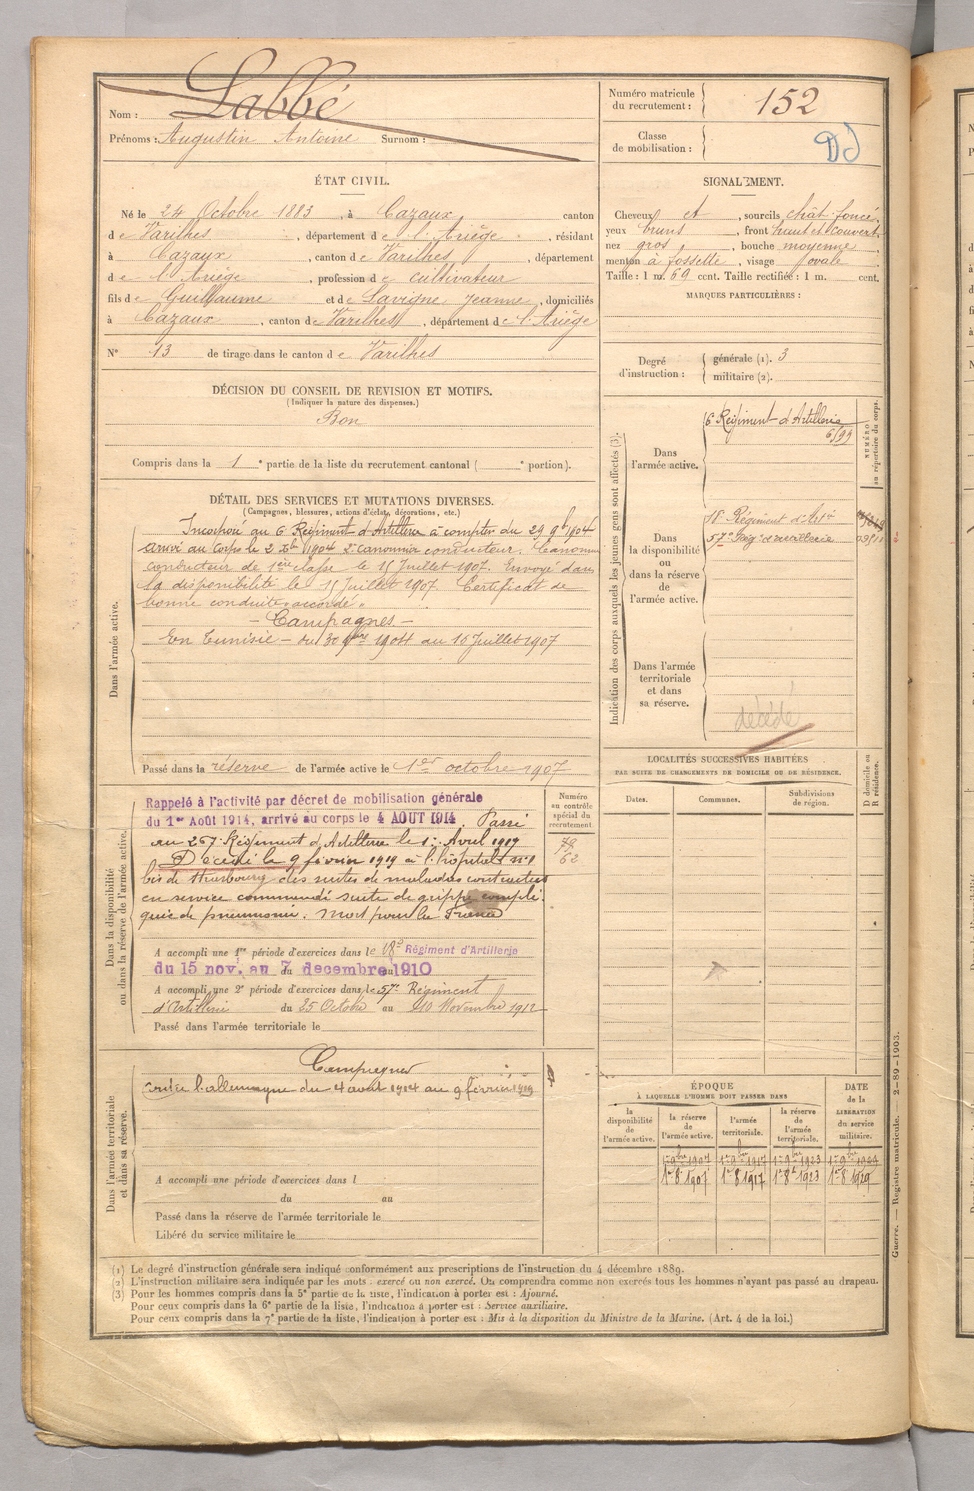 Nom : Labbé
Prénoms : Augustin Antoine Surnom :
Numéro matricule du recrutement : 152
Classe de mobilisation :
ÉTAT CIVIL.
Né le 24 Octobre 1883, à Cazaux canton
de Varilhes, département de l'Ariège, résidant
à Cazaux, canton de Varilhes, département
de l'Ariège, profession de cultivateur
fils de Guillaume et de Lavigne Jeanne, domiciliés
à Cazaux, canton de Varilhes, département de l'Ariège
N° 13 de tirage dans le canton de Varilhes
SIGNALEMENT.
Cheveux et, sourcils chât. foncé,
yeux bruns, front haut et couvert
nez gros, bouche moyenne
menton à fossette, visage ovale
Taille : 1 m. 69 cent. Taille rectifiée : 1 m. cent.
MARQUES PARTICULIÈRES :
Degré d'instruction : générale (1). 3
militaire (2).
DÉCISION DU CONSEIL DE REVISION ET MOTIFS.
(Indiquer la nature des dispenses.)
Bon
Compris dans la 1e partie de la liste du recrutement cantonal ( e portion).
DÉTAIL DES SERVICES ET MUTATIONS DIVERSES.
(Campagnes, blessures, actions d'éclat, décorations, etc.)
Dans l'armée active.
Incorporé au 6 Régiment d'Artillerie à compter du 29 9b 1904
arrivé au corps le 2 Xb 1904 2e canonnier conducteur. Canonnier
conducteur de 1ère classe le 15 Juillet 1907. Envoyé dans
la disponibilité le 15 Juillet 1907. Certificat de
bonne conduite accordé.
- Campagnes -
En Tunisie - du 30 9bre 1904 au 16 Juillet 1907
Passé dans la réserve de l'armée active le 1er octobre 1907
Indication des corps auxquels les jeunes gens sont affectés (3).
NUMÉRO au répertoire du corps.
Dans l'armée active.
6 Régiment d'Artillerie
Dans la disponibilité ou dans la réserve de l'armée active.
18e Régiment d'Artie
57e Rég. d'artillerie
Dans l'armée territoriale et dans sa réserve.
décédé
LOCALITÉS SUCCESSIVES HABITÉES
PAR SUITE DE CHANGEMENTS DE DOMICILE OU DE RÉSIDENCE.
D domicile ou R résidence.
Dates. Communes. Subdivisions de région.
Ou dans la disponibilité ou dans la réserve de l'armée active.
Numéro au contrôle spécial du recrutement.
78
62
Rappelé à l'activité par décret de mobilisation générale
du 1er Août 1914, arrivé au corps le 4 AOUT 1914. Passé
au 257e Régiment d'Artillerie le 1er Avril 1917
Décédé le 9 février 1919 à l'hôpital n° 1
bis de Strasbourg des suites de maladies contractées
en service commandé suite de grippe compli
quée de pneumonie. Mort pour la France
A accompli une 1re période d'exercices dans le 18e Régiment d'Artillerie
du 15 nov. au 7 decembre 1910
A accompli une 2e période d'exercices dans le 57e Régiment
d'Artillerie du 25 Octobre au 10 Novembre 1912
Passé dans l'armée territoriale le
Dans l'armée territoriale et dans sa réserve.
Campagnes
contre l'allemagne du 4 août 1914 au 9 février 1919
A accompli une période d'exercices dans l
du au
Passé dans la réserve de l'armée territoriale le
Libéré du service militaire le
ÉPOQUE
À LAQUELLE L'HOMME DOIT PASSER DANS
DATE de la LIBÉRATION du service militaire.
la disponibilité de l'armée active. la réserve de l'armée active. l'armée territoriale. la réserve de l'armée territoriale.
1er 9bre 1907 1er 9bre 1917 1er 9bre 1923 1er 9bre 1929
1er 8b 1907 1er 8 1917 1er 8b 1923 1er 8 1929
Guerre. — Registre matricule. — 2-89-1903.
(1) Le degré d'instruction générale sera indiqué conformément aux prescriptions de l'instruction du 4 décembre 1889.
(2) L'instruction militaire sera indiquée par les mots : exercé ou non exercé. On comprendra comme non exercés tous les hommes n'ayant pas passé au drapeau.
(3) Pour les hommes compris dans la 5e partie de la liste, l'indication à porter est : Ajourné.
Pour ceux compris dans la 6e partie de la liste, l'indication à porter est : Service auxiliaire.
Pour ceux compris dans la 7e partie de la liste, l'indication à porter est : Mis à la disposition du Ministre de la Marine. (Art. 4 de la loi.)